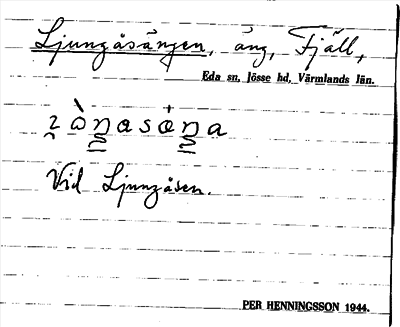 Ljungåsängen, äng, Fjäll,
Eda sn, Jösse hd, Värmlands län.
Vid Ljungåsen.
PER HENNINGSSON 1944.